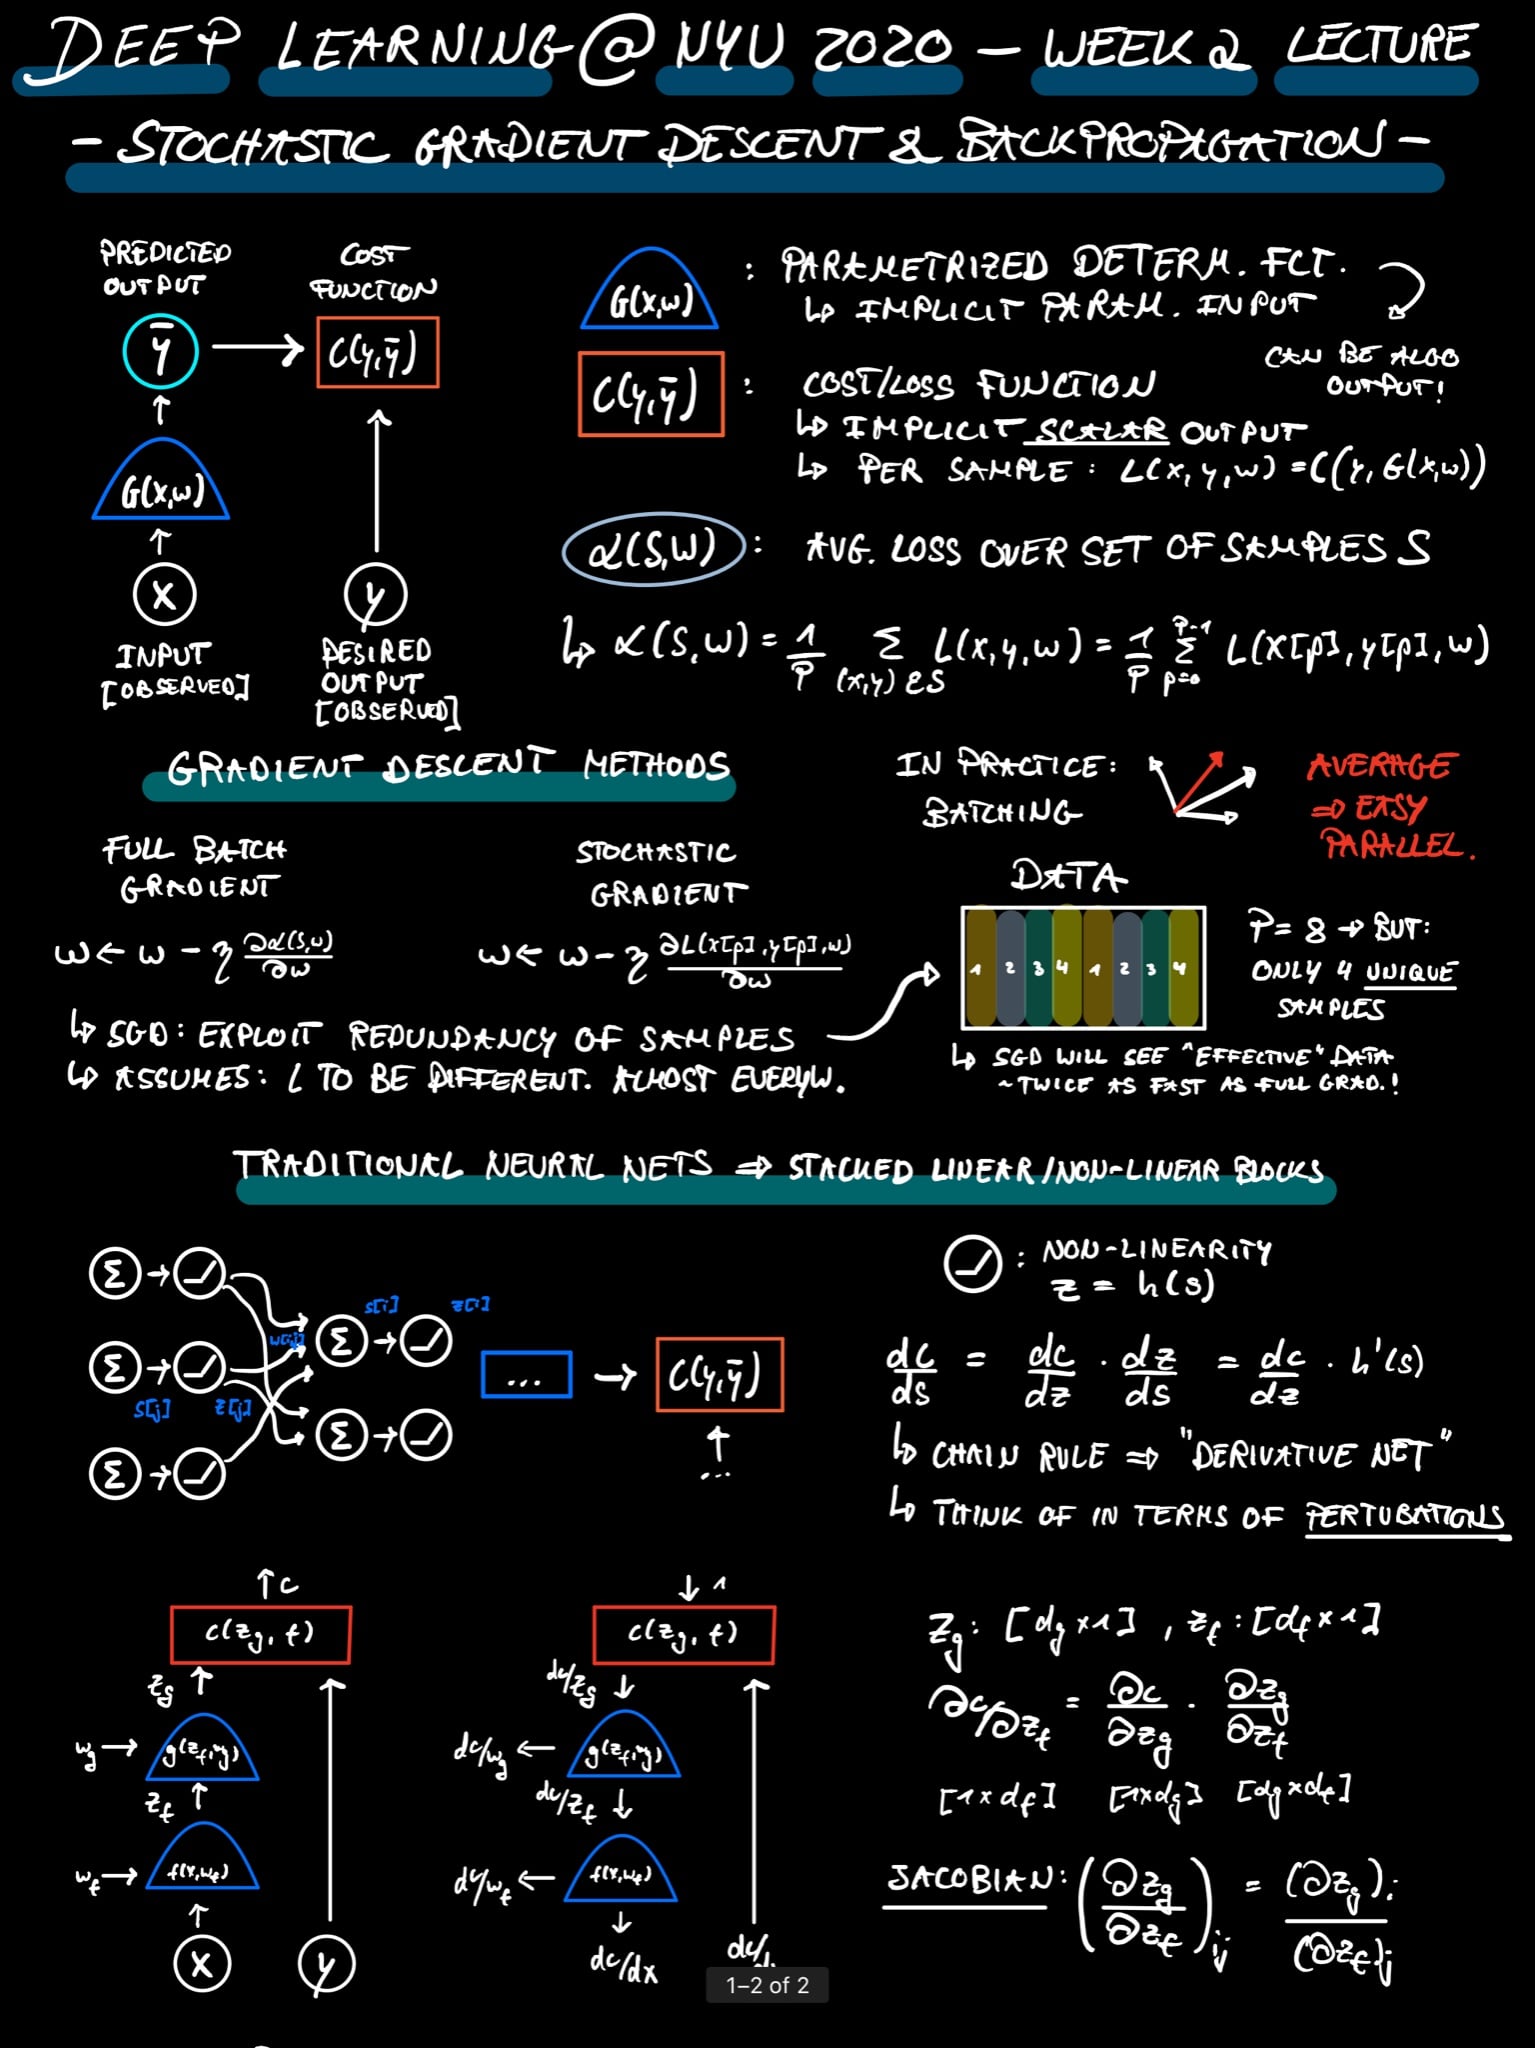 DEEP LEARNING @ NYU 2020 — WEEK 2 LECTURE
- STOCHASTIC GRADIENT DESCENT & BACKPROPAGATION -
PREDICTED
OUTPUT
COST
FUNCTION
ȳ
C(y,ȳ)
G(x,w)
X
y
INPUT
[OBSERVED]
DESIRED
OUTPUT
[OBSERVED]
G(x,w) : PARAMETRIZED DETERM. FCT.
↳ IMPLICIT PARAM. INPUT
CAN BE ALSO
OUTPUT!
C(y,ȳ) : COST/LOSS FUNCTION
↳ IMPLICIT SCALAR OUTPUT
↳ PER SAMPLE: L(x,y,w) = C(y, G(x,w))
ℒ(S,W) : AVG. LOSS OVER SET OF SAMPLES S
↳ ℒ(S,W) = 1/P Σ (x,y) ∈ S L(x,y,w) = 1/P Σ p=0 P-1 L(x[p], y[p], w)
GRADIENT DESCENT METHODS
FULL BATCH
GRADIENT
w ← w - η ∂ℒ(S,w)/∂w
STOCHASTIC
GRADIENT
w ← w - η ∂L(x[p], y[p], w)/∂w
↳ SGD: EXPLOIT REDUNDANCY OF SAMPLES
↳ ASSUMES: L TO BE DIFFERENT. ALMOST EVERYW.
IN PRACTICE:
BATCHING
AVERAGE
⇒ EASY
PARALLEL.
DATA
1 2 3 4 1 2 3 4
P = 8 → BUT:
ONLY 4 UNIQUE
SAMPLES
↳ SGD WILL SEE "EFFECTIVE" DATA
~ TWICE AS FAST AS FULL GRAD.!
TRADITIONAL NEURAL NETS ⇒ STACKED LINEAR/NON-LINEAR BLOCKS
Σ →
Σ →
Σ →
s[j] z[j]
w[ij]
s[i] z[i]
Σ →
Σ →
...
→ C(y,ȳ)
↑
...
: NON-LINEARITY
z = h(s)
dc/ds = dc/dz · dz/ds = dc/dz · h'(s)
↳ CHAIN RULE ⇒ "DERIVATIVE NET"
↳ THINK OF IN TERMS OF PERTUBATIONS
↑ c
c(zg, t)
zg ↑
wg → g(zf,wg)
zf ↑
wf → f(x,wf)
↑
X
y
↓ 1
c(zg, t)
dc/zg ↓
dc/wg ← g(zf,wg)
dc/zf ↓
dc/wf ← f(x,wf)
↓
dc/dx
zg: [dg×1], zf: [df×1]
∂c/∂zf = ∂c/∂zg · ∂zg/∂zf
[1×df] [1×dg] [dg×df]
JACOBIAN: (∂zg/∂zf)ij = (∂zg)i/(∂zf)j
1–2 of 2